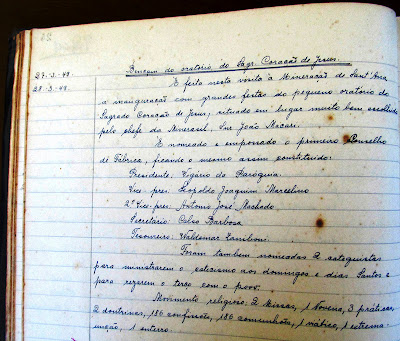 Bençam do oratório do Sagr. Coração de Jesus.
27-3-49.
28-3-49.
É feita nesta visita à Mineração de Sant'Ana
a inauguração com grandes festas do pequeno oratório do
Sagrado Coração de Jesus, situado em lugar muito bem escolhido
pelo chefe da Minerasul, Snr João Macari.
É nomeado e empossado o primeiro Conselho
de Fábrica, ficando o mesmo assim constituído:
Presidente: Vigário da Paróquia
Vice-pres: Leopoldo Joaquim Marcelino
2º Vice-pres: Antonio José Machado
Secretário: Celso Barbosa
Tesoureiro: Valdemar Zaniboni.
Foram tambem nomeadas 2 catequistas
para ministrarem o catecismo aos domingos e dias Santos e
para rezerem o terço com o povo.
Movimento religioso: 2 Missas, 1 Novena, 3 práticas,
2 doutrinas, 186 confissões, 186 comunhões, 1 viático, 1 extrema-
unção, 1 enterro.